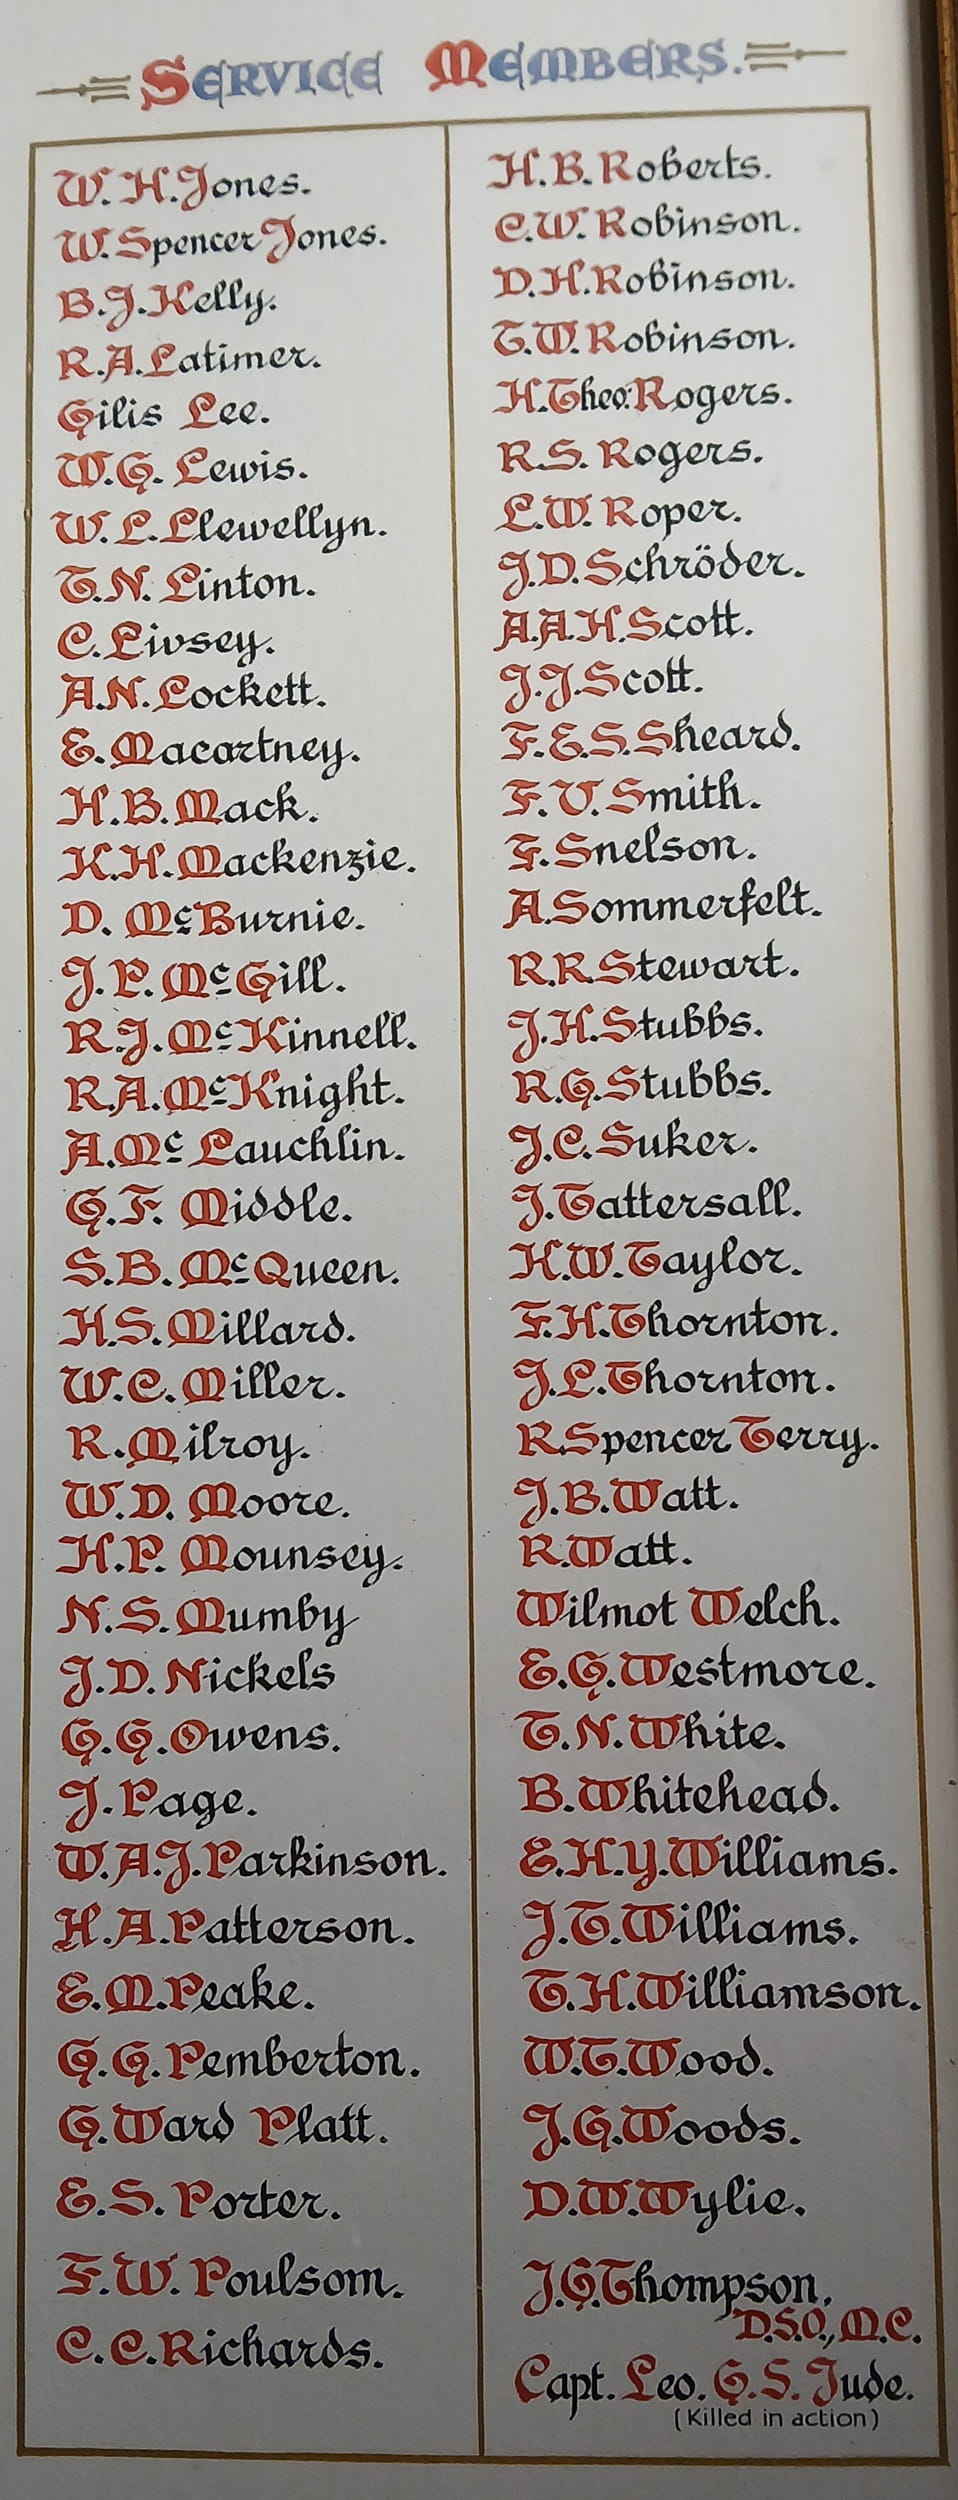 SERVICE MEMBERS.
W. H. Jones.
W. Spencer Jones.
B. J. Kelly.
R. A. Latimer.
Gilis Lee.
W. G. Lewis.
W. L. Llewellyn.
T. N. Linton.
C. Livsey.
A. N. Lockett.
E. Macartney.
H. B. Mack.
K. H. Mackenzie.
D. McBurnie.
J. P. McGill.
R. J. McKinnell.
R. A. McKnight.
A. Mc Lauchlin.
G. F. Middle.
S. B. McQueen.
H. S. Millard.
W. C. Miller.
R. Milroy.
W. D. Moore.
H. P. Mounsey.
N. S. Mumby
J. D. Nickels
G. G. Owens.
J. Page.
W. A. J. Parkinson.
H. A. Patterson.
E. M. Peake.
G. G. Pemberton.
G. Ward Platt.
E. S. Porter.
F. W. Poulsom.
C. C. Richards.
H. B. Roberts.
C. W. Robinson.
D. H. Robinson.
T. W. Robinson.
H. Theo: Rogers.
R. S. Rogers.
L. W. Roper.
J. D. Schröder.
A. A. H. Scott.
J. J. Scott.
F. E. S. Sheard.
F. V. Smith.
F. Snelson.
A. Sommerfelt.
R. R. Stewart.
J. H. Stubbs.
R. G. Stubbs.
J. C. Suker.
J. Tattersall.
K. W. Taylor.
F. H. Thornton.
J. L. Thornton.
R. Spencer Terry.
J. B. Watt.
R. Watt.
Wilmot Welch.
E. G. Westmore.
T. N. White.
B. Whitehead.
E. H. Y. Williams.
J. T. Williams.
T. H. Williamson.
W. T. Wood.
J. G. Woods.
D. W. Wylie.
J. G. Thompson,
D.S.O., M.C.
Capt. Leo. G. S. Jude.
(Killed in action)